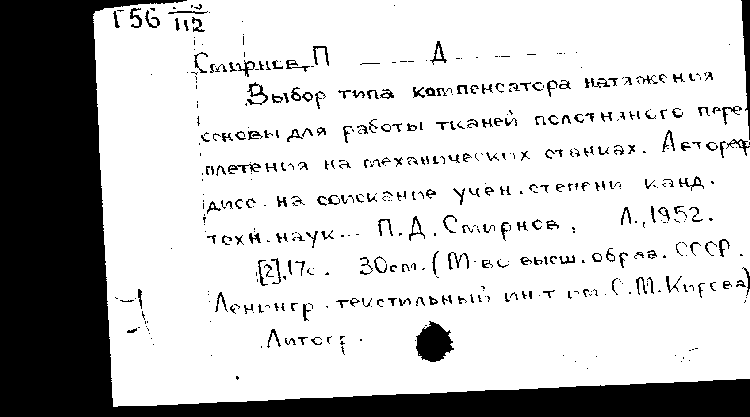 Г56
112
Смирнов, П Д
Выбор типа компенсатора натяжения
основы для работы тканей полотняного пере-
плетения на механических станках. Автореф
дисс. на соискание учен. степени канд.
техн. наук... П.Д. Смирнов. Л., 1952.
[2], 17с. 30см. (М-во высш. образ. СССР.
Ленингр. текстильный ин-т им. С.М. Кирова)
Литогр.